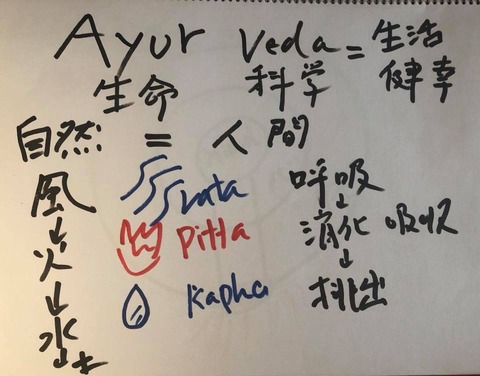 Ayur Veda = 生活
生命 科学 健幸
自然 = 人間
風 vata 呼吸
↓ ↓
火 Pitta 消化 吸収
↓ ↓
水 Kapha 排出
↓
土